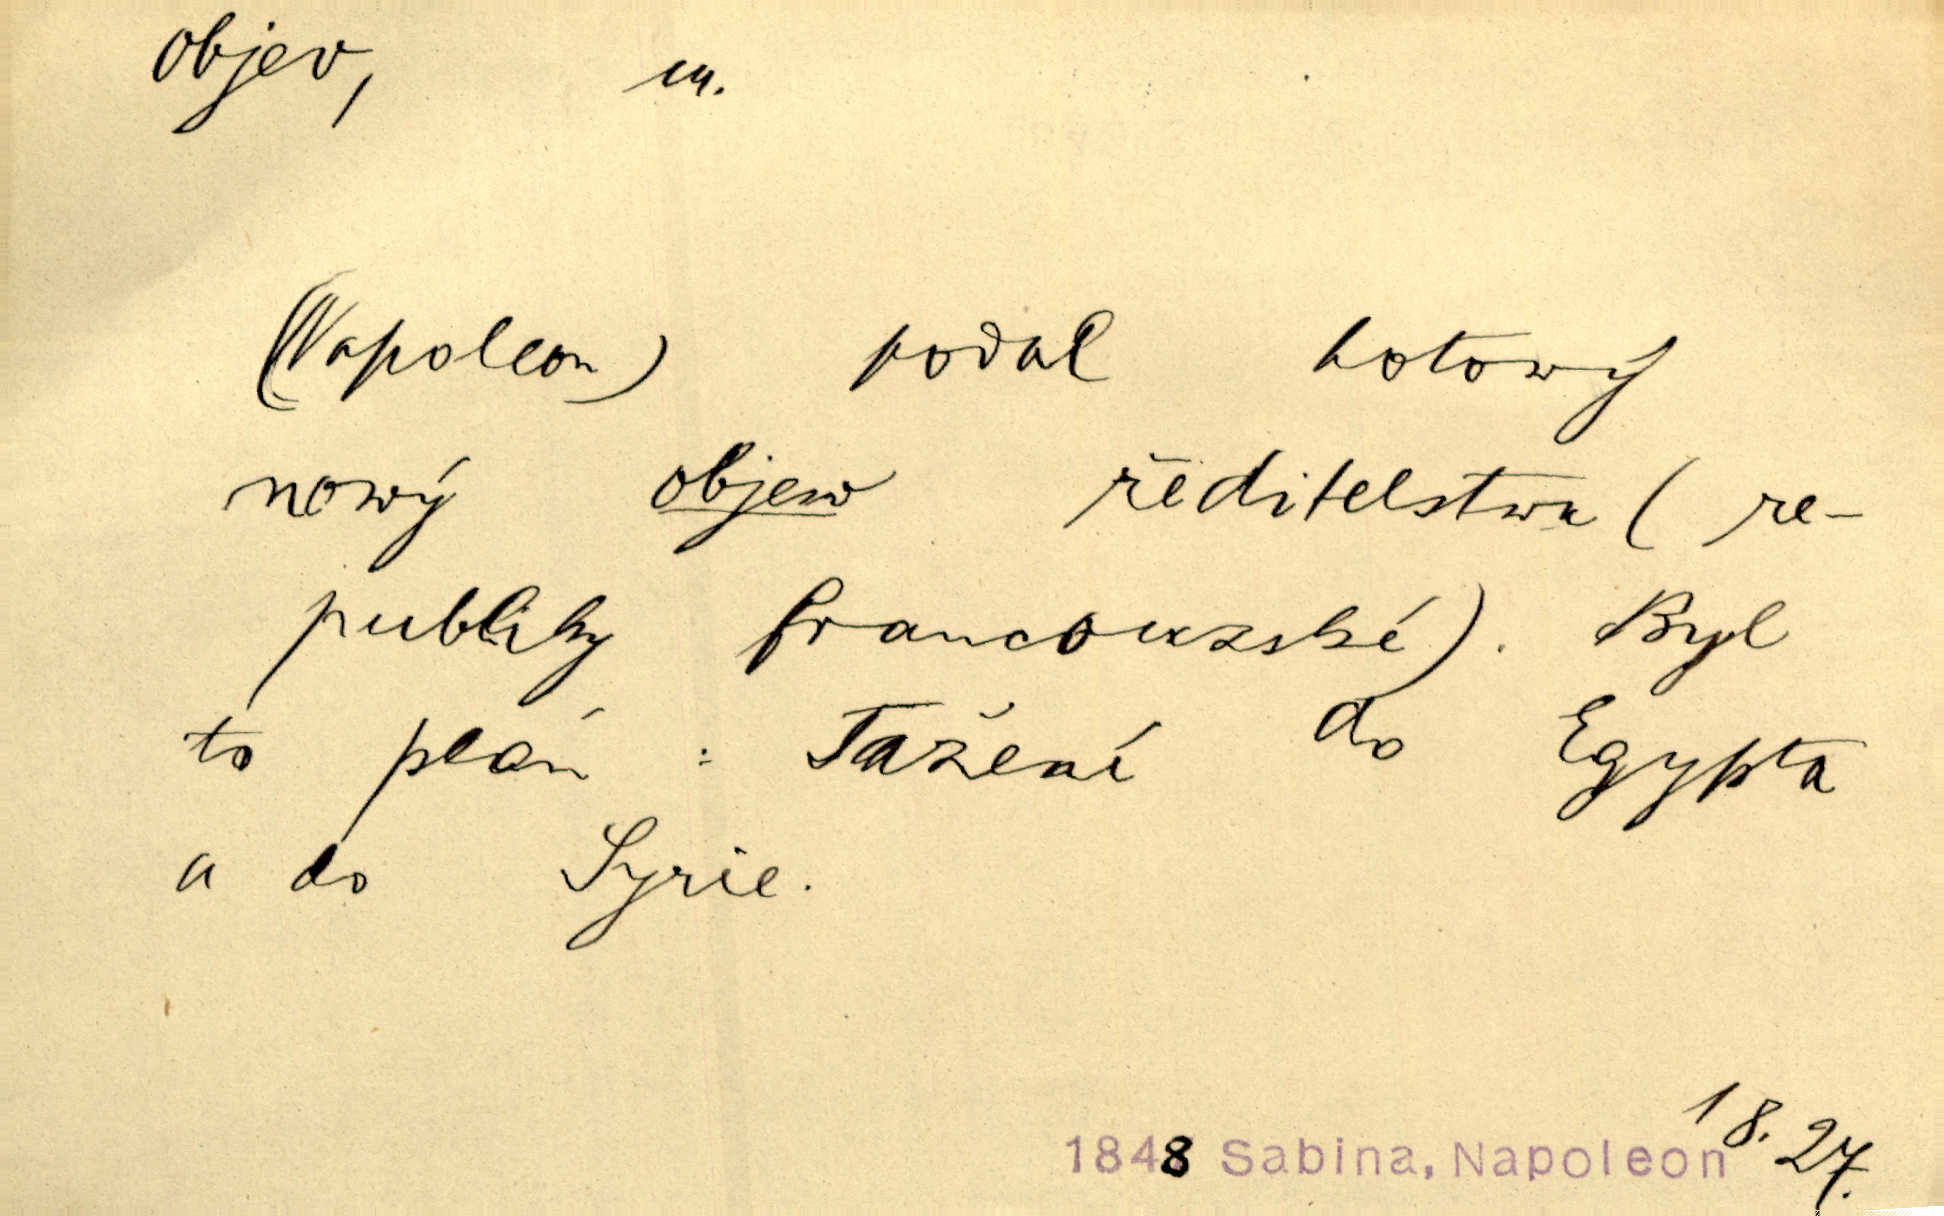 objev, m.
(Napoleon) podal hotowý
nowý objew ředitelstwu ( re-
publiky francouzské). Byl
to plán : Tažení do Egypta
a do Syrie.
1848 Sabina, Napoleon 18.27.